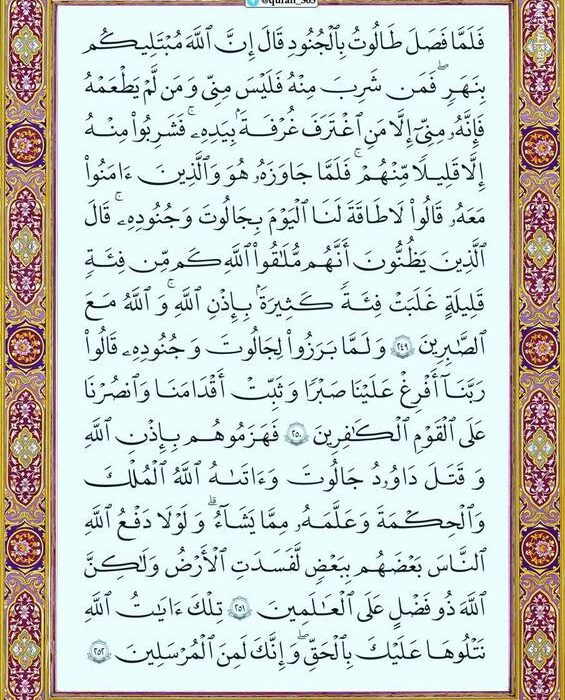 @quran_365
فَلَمَّا فَصَلَ طَالُوتُ بِٱلْجُنُودِ قَالَ إِنَّ ٱللَّهَ مُبْتَلِيكُم
بِنَهَرٍ فَمَن شَرِبَ مِنْهُ فَلَيْسَ مِنِّى وَمَن لَّمْ يَطْعَمْهُ
فَإِنَّهُۥ مِنِّىٓ إِلَّا مَنِ ٱغْتَرَفَ غُرْفَةًۢ بِيَدِهِۦ ۚ فَشَرِبُوا۟ مِنْهُ
إِلَّا قَلِيلًا مِّنْهُمْ ۚ فَلَمَّا جَاوَزَهُۥ هُوَ وَٱلَّذِينَ ءَامَنُوا۟
مَعَهُۥ قَالُوا۟ لَا طَاقَةَ لَنَا ٱلْيَوْمَ بِجَالُوتَ وَجُنُودِهِۦ ۚ قَالَ
ٱلَّذِينَ يَظُنُّونَ أَنَّهُم مُّلَـٰقُوا۟ ٱللَّهِ كَم مِّن فِئَةٍ
قَلِيلَةٍ غَلَبَتْ فِئَةً كَثِيرَةًۢ بِإِذْنِ ٱللَّهِ ۗ وَٱللَّهُ مَعَ
ٱلصَّـٰبِرِينَ ٢٤٩ وَلَمَّا بَرَزُوا۟ لِجَالُوتَ وَجُنُودِهِۦ قَالُوا۟
رَبَّنَآ أَفْرِغْ عَلَيْنَا صَبْرًا وَثَبِّتْ أَقْدَامَنَا وَٱنصُرْنَا
عَلَى ٱلْقَوْمِ ٱلْكَـٰفِرِينَ ٢٥٠ فَهَزَمُوهُم بِإِذْنِ ٱللَّهِ
وَقَتَلَ دَاوُۥدُ جَالُوتَ وَءَاتَىٰهُ ٱللَّهُ ٱلْمُلْكَ
وَٱلْحِكْمَةَ وَعَلَّمَهُۥ مِمَّا يَشَآءُ ۗ وَلَوْلَا دَفْعُ ٱللَّهِ
ٱلنَّاسَ بَعْضَهُم بِبَعْضٍ لَّفَسَدَتِ ٱلْأَرْضُ وَلَـٰكِنَّ
ٱللَّهَ ذُو فَضْلٍ عَلَى ٱلْعَـٰلَمِينَ ٢٥١ تِلْكَ ءَايَـٰتُ ٱللَّهِ
نَتْلُوهَا عَلَيْكَ بِٱلْحَقِّ ۚ وَإِنَّكَ لَمِنَ ٱلْمُرْسَلِينَ ٢٥٢